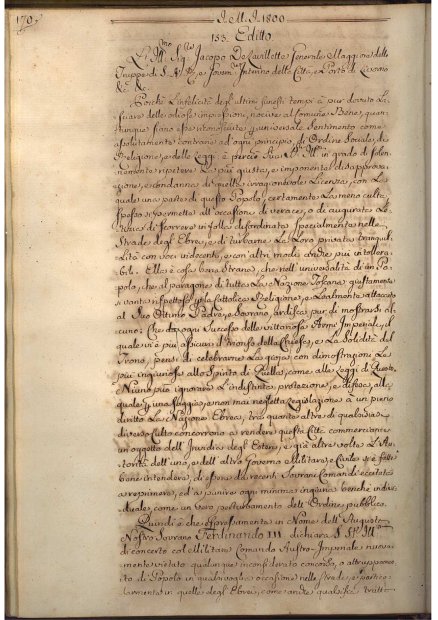 170.
J. M. J. 1800
153. Editto
L'Ill.mo Sig.re Jacopo De Lavillette Generale Maggiore delle
Truppe di S. A. R. e Govern.re Interino della Città, e Porto di Livorno
&c. &c.
Poichè L'infelicità degli ultimi funesti tempi à pur dovuto La-
sciare delle odiose impressioni, nocive al Comune Bene, quan-
tunque siano esse riconosciute p universale Sentimento come
assolutamente contrarie ad ogni principio, di Ordine Sociale, di
Religione, e delle Leggi è perciò Sua Sig. Ill.ma in grado di solen-
namente ripetere La più giusta, e imponente disapprova-
zione, e condanna di quella irragionevole Licenza, con La
quale una parte di questo Popolo, certamente La meno culta
spesso si permette all'occasione di verace, o di augurata Le-
tizia di scorrere in folla disordinata specialmente nelle
Strade degl'Ebrei, e di turbarne La Loro privata tranquil-
lità con voci indecenti, e con altri modi anche più intollera-
bili. Ella è cosa ben Strana, che nell'universalità di un Po-
polo, che al paragone di tutta La Nazione Toscana giustamente
si vanta rispettoso p La Cattolica Religione, e Lealmente attaccato
al Suo Ottimo Padre, e Sovrano, ardisca pur di mostrarsi al-
cuno: Che dopo ogni Successo delle vittoriose Armi Imperiali, il
quale vi è più assicura il trionfo della Chiesa, e La Solidità del
Trono, pensi di celebrarne La gioja con dimostrazioni Le
più ingiuriose allo Spirito di Quella, come alle Leggi di Questo.
Niuno può ignorare L'indistinta protezione, e difesa, alle
quale p una saggia, e non mai negletta Legislazione à un pieno
diritto La Nazione Ebrea, tra quante altre di qualsisia
diverso Culto concorrono a rendere questa Città commerciante
un oggetto dell'Invidia degl'Esteri, e già altre volte L'Au-
torità dell'uno, e dell'altro Governo Militare, e Civile si è fatta
bene intendere, di essere da recenti Sovrani Comandi eccitata
a reprimere, ed a punire ogni minima ingiuria benchè indivi-
duale, come un vero perturbamento dell'Ordine pubblico.
Quindi è che espressamente in Nome dell'Augusto
Nostro Sovrano Ferdinando III dichiara S. Sig. Ill.ma
di concerto col Militare Comando Austro-Imperiale nuova-
mente vietato qualunque inconsiderato concorso, o attruppamen-
to di Popolo in qualsivoglia occasione nelle Strade, e partico-
larmente in quelle degl'Ebrei, come anche qualsisia tratto